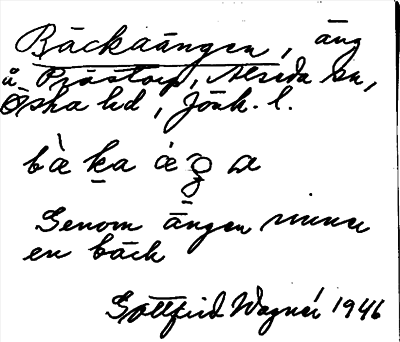 Bäckaängen, äng
å Prästorp, Alseda sn,
Ö̀stra hd, Jönk. l.
Genom ängen rinner
en bäck
Gottfrid Wagnér 1946